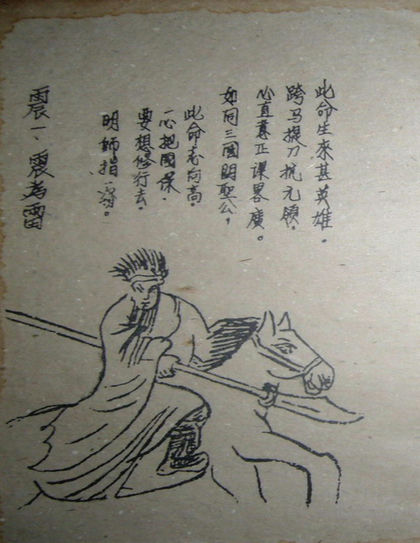 此命生來甚英雄。
跨马提刀抗元領。
心直意正谋畧廣。
如同三國関聖公，
此命志向高。
一心把國保。
要想修行去。
明師指
震一、震为雷